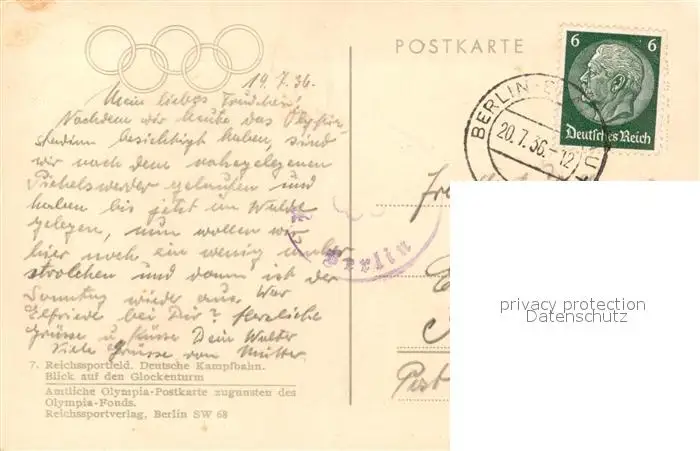 POSTKARTE
6 6
Deutsches Reich
BERLIN
20.7.36.-12
19.7.36.
Mein liebes Trudchen!
Nachdem wir heute das Olympia-
stadion besichtigt haben, sind
wir nach dem nahegelegenen
Pichelswerder gelaufen und
haben bis jetzt im Walde
gelegen, nun wollen wir
hier noch ein wenig umher
strolchen und dann ist der
Sonntag wieder aus. War
Elfriede bei Dir? Herzliche
Grüsse u. Küsse Dein Walter
Viele Grüsse von Mutter.
Berlin
7. Reichssportfeld. Deutsche Kampfbahn.
Blick auf den Glockenturm
Amtliche Olympia-Postkarte zugunsten des
Olympia-Fonds.
Reichssportverlag, Berlin SW 68
Post
privacy protection
Datenschutz